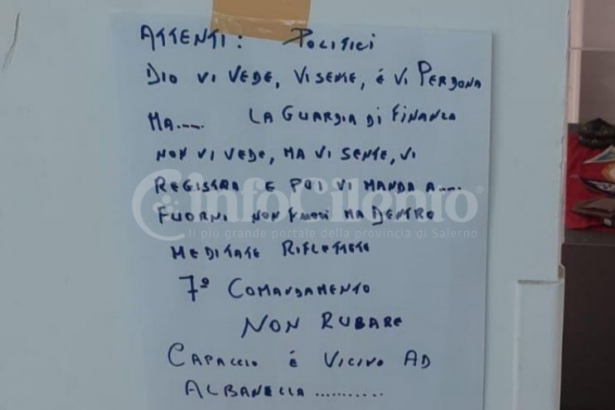 ATTENTI: POLITICI
DIO VI VEDE, VI SENTE, È VI PERDONA
MA..... LA GUARDIA DI FINANZA
NON VI VEDE, MA VI SENTE, VI
REGISTRA E POI VI MANDA A....
infoCilento
FUORNI NON FUORI MA DENTRO
Il più grande portale della provincia di Salerno
MEDITATE RIFLETTETE
7º COMANDAMENTO
NON RUBARE
CAPACCIO È VICINO AD
ALBANELLA ...........